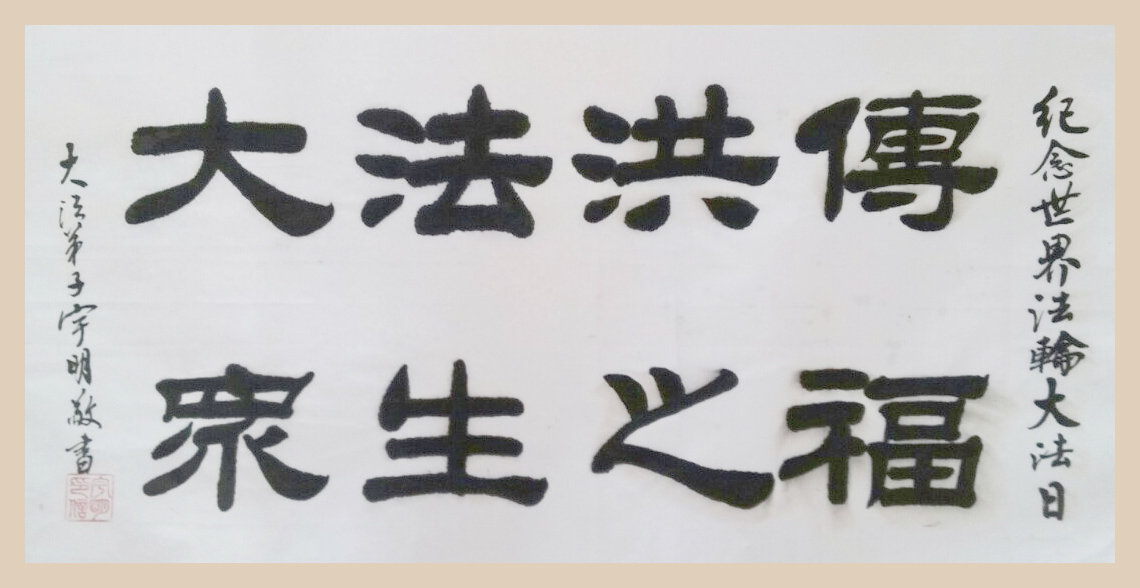 紀念世界法輪大法日
大法洪傳
衆生之福
大法弟子宇明敬書